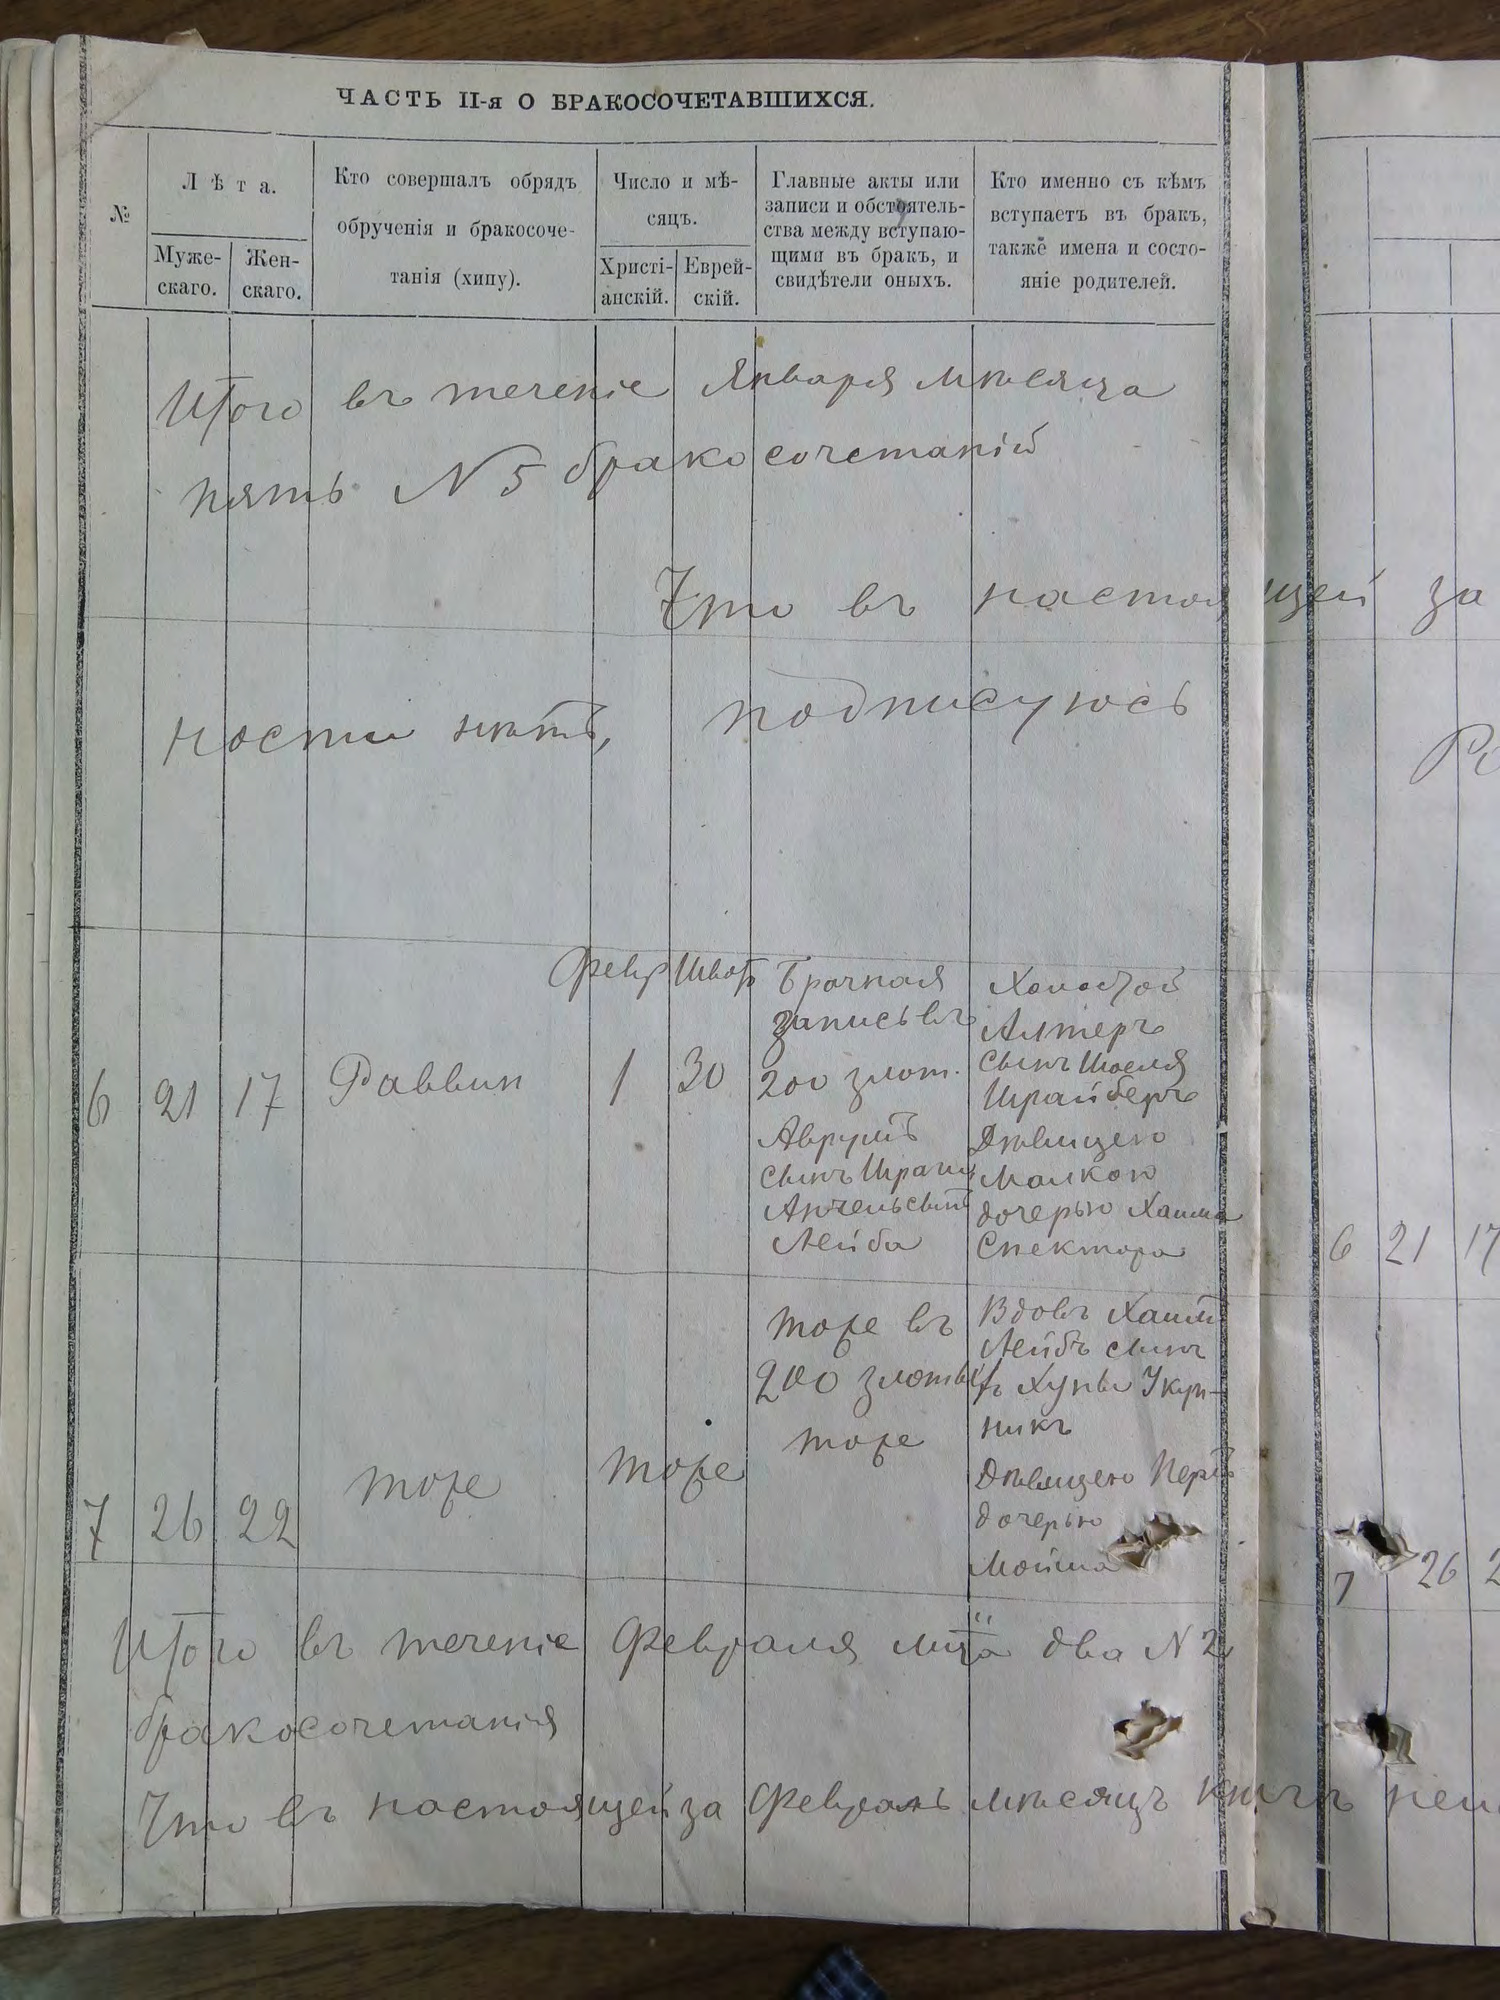 ЧАСТЬ II-я О БРАКОСОЧЕТАВШИХСЯ.
№
Лѣта.
Муже-
скаго.
Жен-
скаго.
Кто совершалъ обрядъ
обрученія и бракосоче-
танія (хипу).
Число и мѣ-
сяцъ.
Христі-
анскій.
Еврей-
скій.
Главные акты или
записи и обстоятель-
ства между вступаю-
щими въ бракъ, и
свидѣтели оныхъ.
Кто именно съ кѣмъ
вступаетъ въ бракъ,
также имена и состо-
яніе родителей.
Итого въ теченіе Января мѣсяца
пять N 5 бракосочетаній
Что въ настоящей за
ности нѣтъ, подписуюсь
6 21 17 Раввин
Февр
1
Шват
30
Брачная
запись въ
200 злот.
Аврумъ
сынъ
Лейба
Холостой
Алтеръ
сынъ Шоеля
Шрайберъ
Дѣвицею
Малкою
дочерью Хаима
Спектора
6 21 17
7 26 22 тоже тоже
тоже въ
200 злотых
тоже
Вдовъ Хаим
Лейбъ сынъ
Хуны Укуп-
никъ
дѣвицею Перл
дочерью
Мойша
7 26 2
Итого въ теченіе Февраля м-ца два N 2
бракосочетанія
Что въ настоящей за Февраль мѣсяцъ